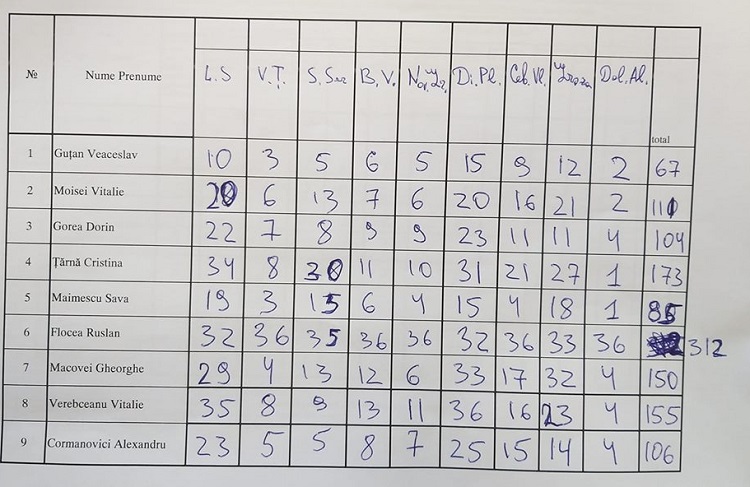 № Nume Prenume L.S V.T. S.Sar B.V. Di.Pl. Ceb.Vl. Dol.Al. total
1 Guțan Veaceslav 10 3 5 6 5 15 9 12 2 67
2 Moisei Vitalie 20 6 13 7 6 20 16 21 2 111
3 Gorea Dorin 22 7 8 9 9 23 11 11 4 104
4 Țârnă Cristina 34 8 30 11 10 31 21 27 1 173
5 Maimescu Sava 19 3 15 6 4 15 4 18 1 85
6 Flocea Ruslan 32 36 35 36 36 32 36 33 36 312
7 Macovei Gheorghe 29 4 13 12 6 33 17 32 4 150
8 Verebceanu Vitalie 35 8 9 13 11 36 16 23 4 155
9 Cormanovici Alexandru 23 5 5 8 7 25 15 14 4 106